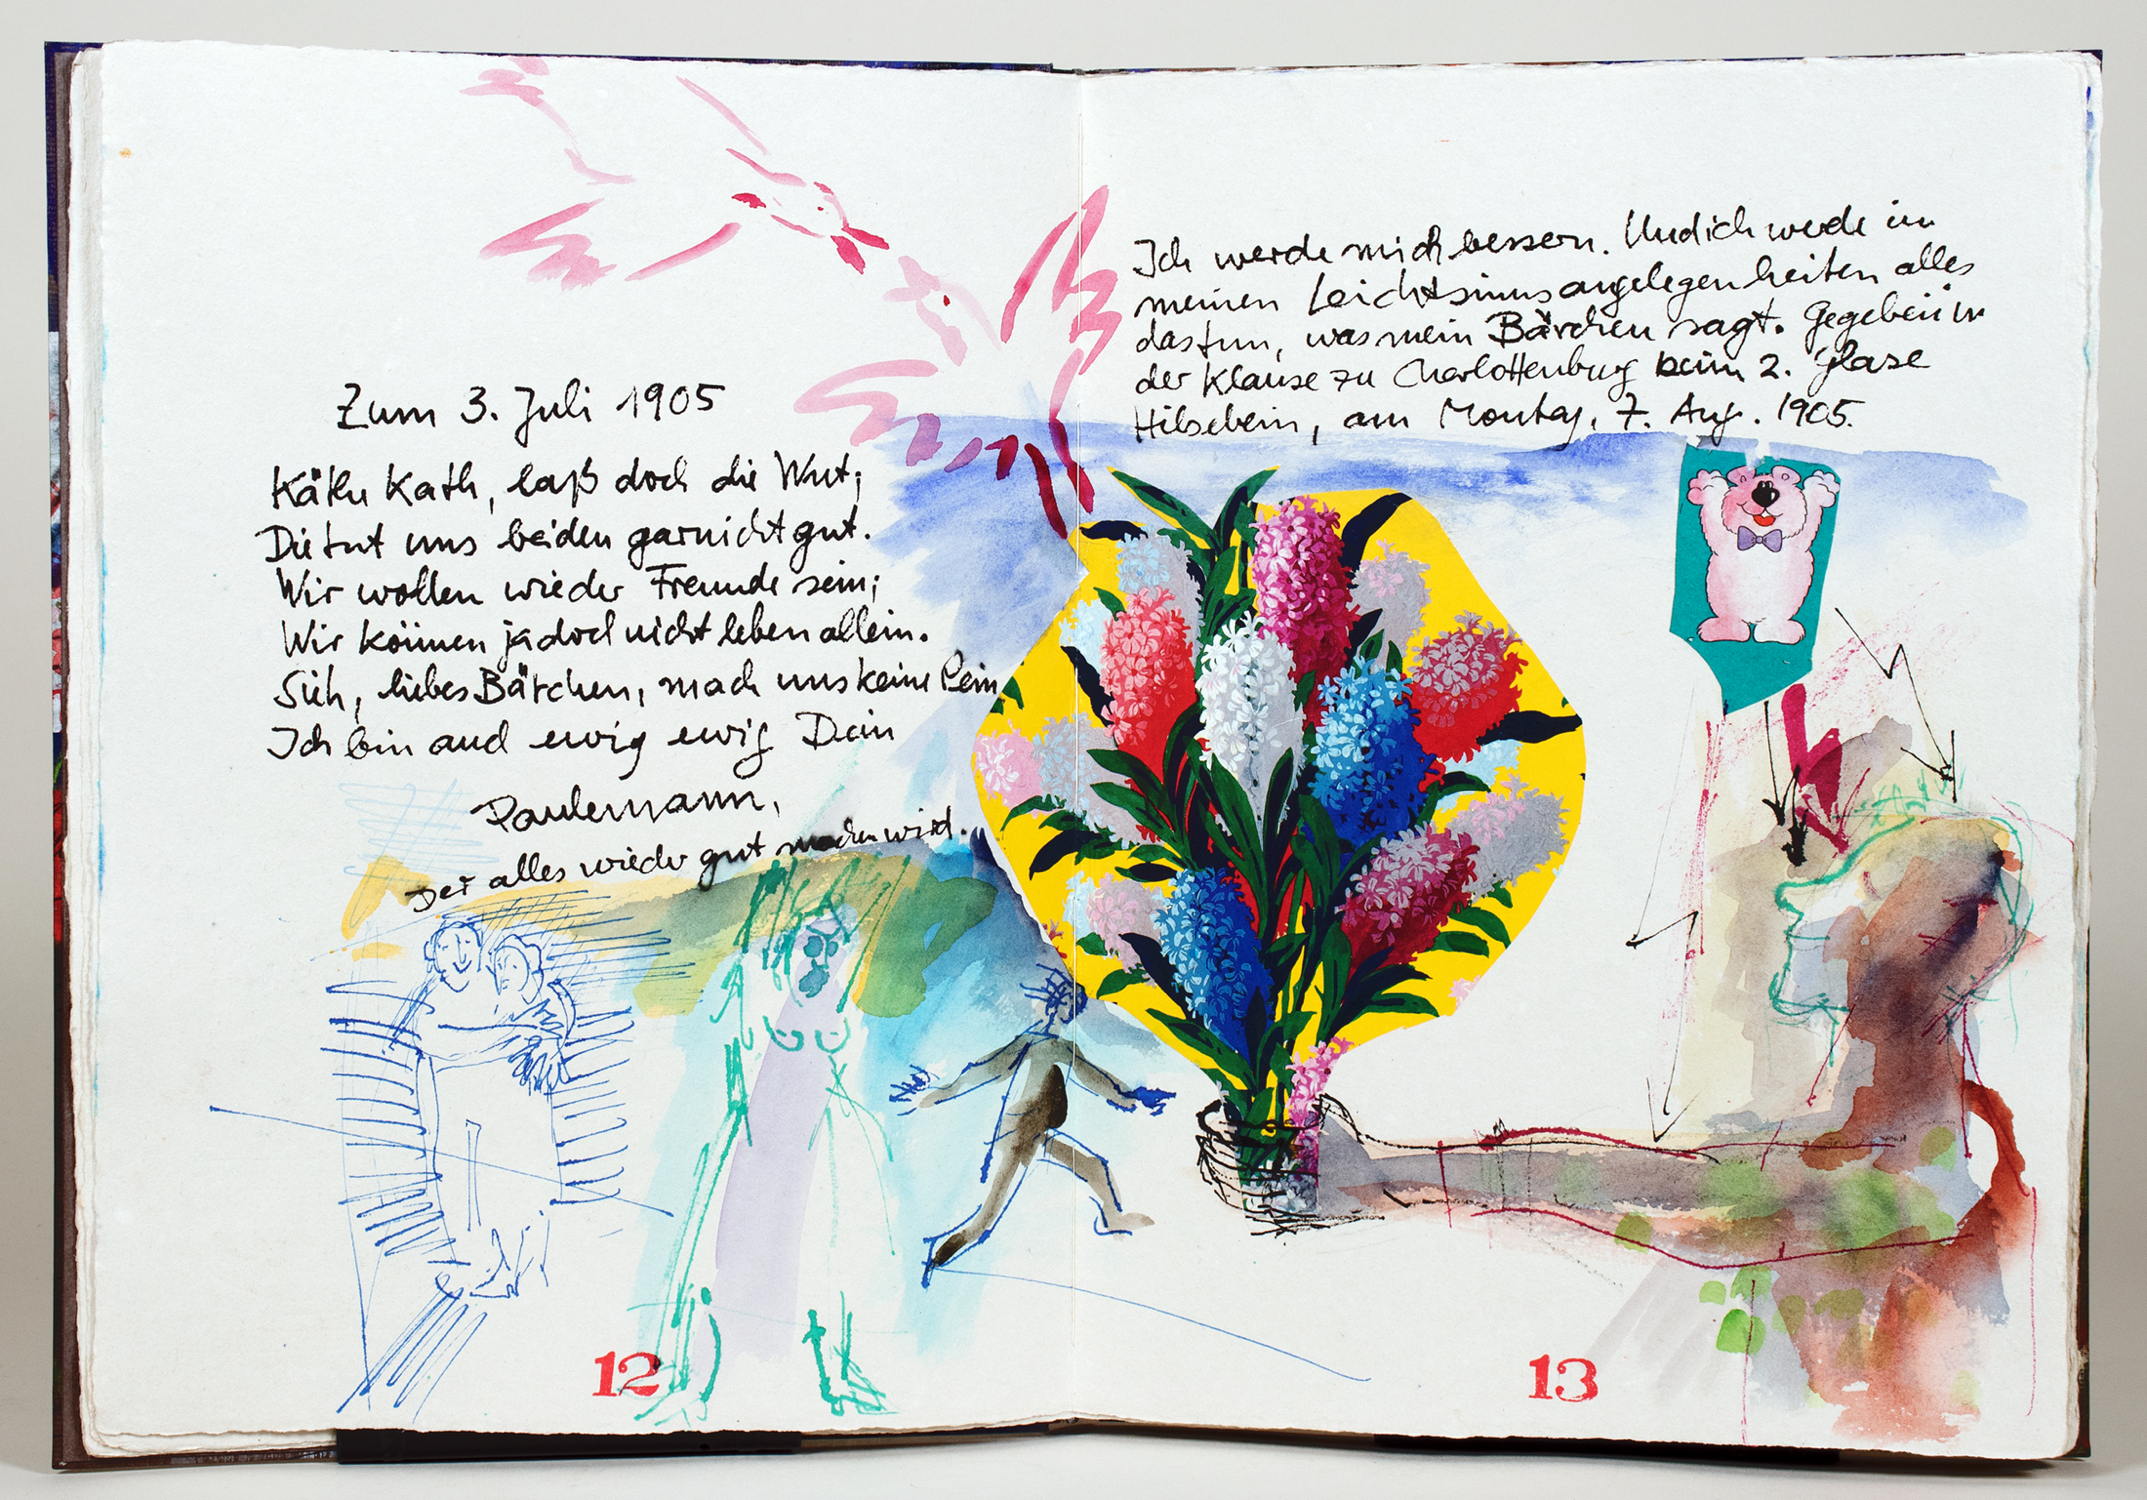 Zum 3. Juli 1905
Käthe Kath, laß doch die Wut;
Die tut uns beiden garnicht gut.
Wir wollen wieder Freunde sein;
Wir können ja doch nicht leben allein.
Sieh, liebes Bärchen, mach uns keine Pein
Ich bin auch ewig ewig Dein
Paulemann,
Der alles wieder gut machen wird.
12
Ich werde mich bessern. Und ich werde in
meinen Leichtsinnsangelegenheiten alles
das tun, was mein Bärchen sagt. Gegeben in
der Klause zu Charlottenburg beim 2. Glase
Hilsebein, am Montag, 7. Aug. 1905.
13